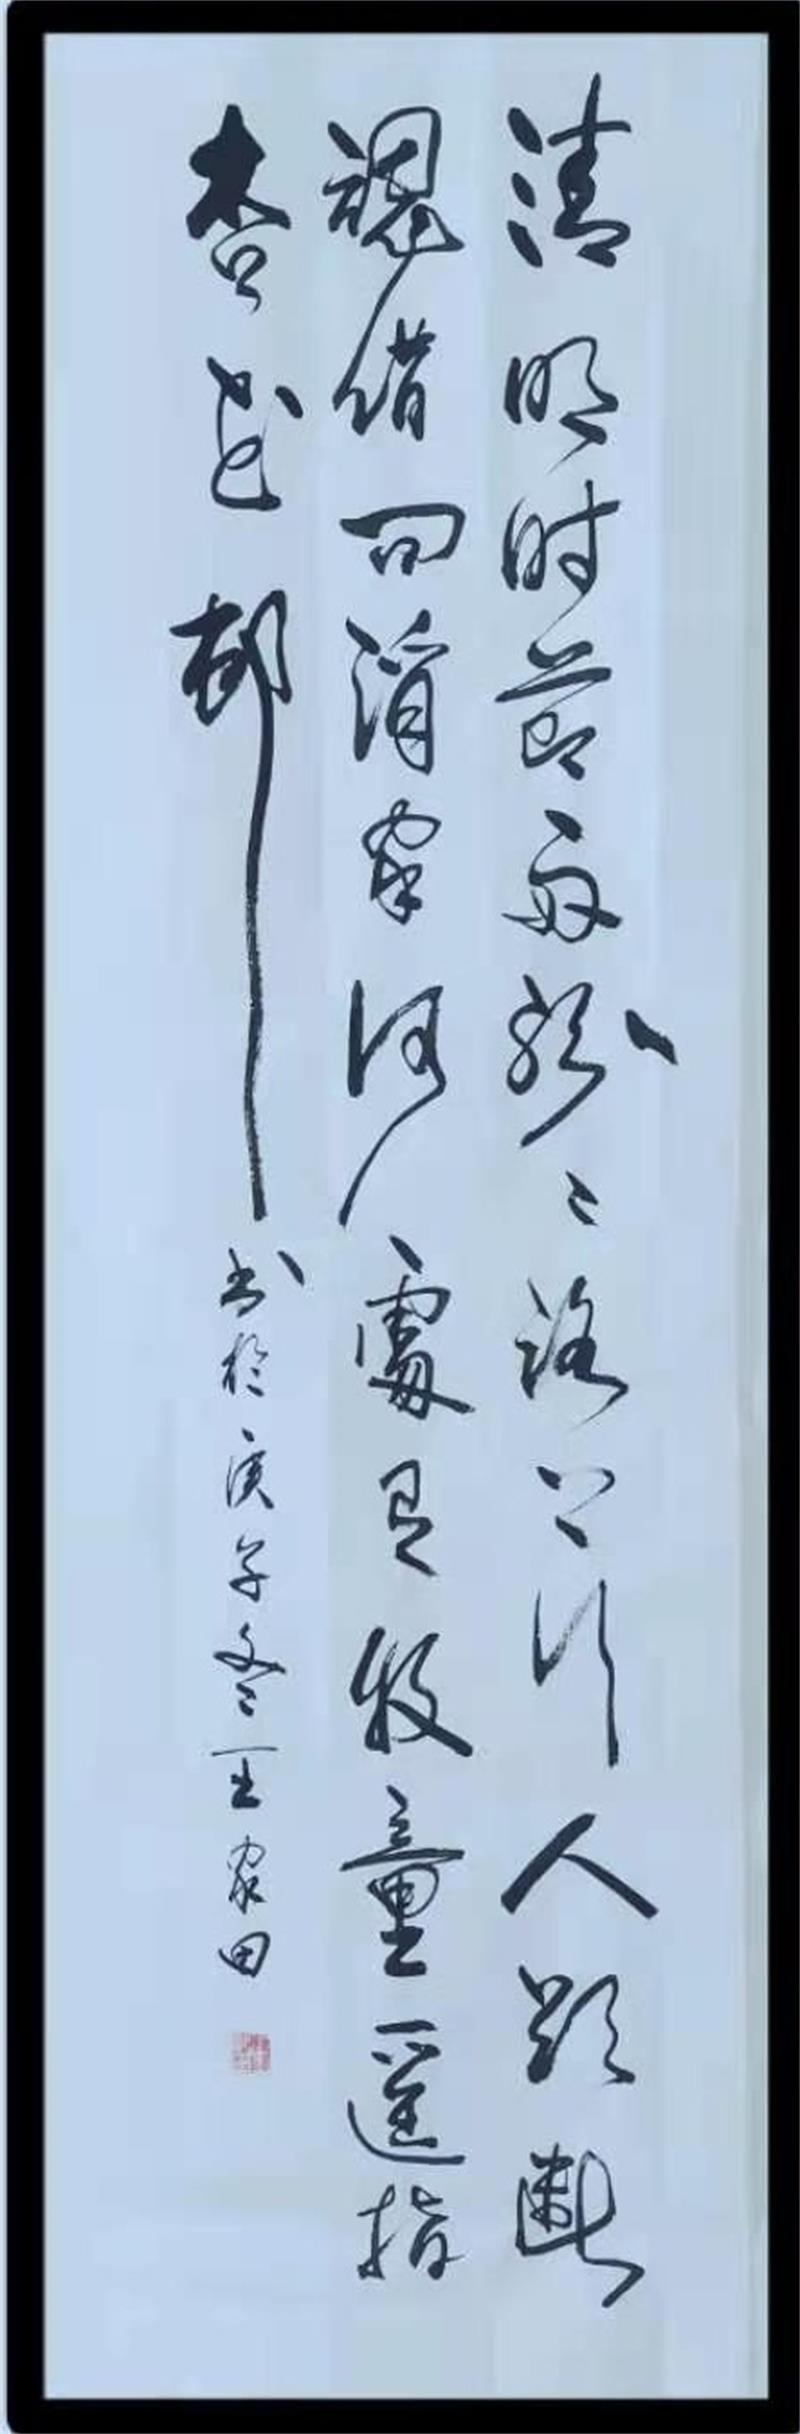 清明时节雨纷々路上行人欲断
魂借问酒家何處有牧童遥指
杏花邨
书於庚子冬王家田